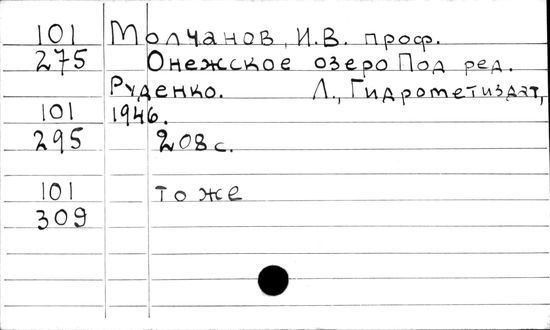 101 Молчанов, И.В. проф.
275 Онежское озеро Под ред.
Руденко. Л., Гидрометиздат,
101 1946.
295 208 с.
101 то же
309